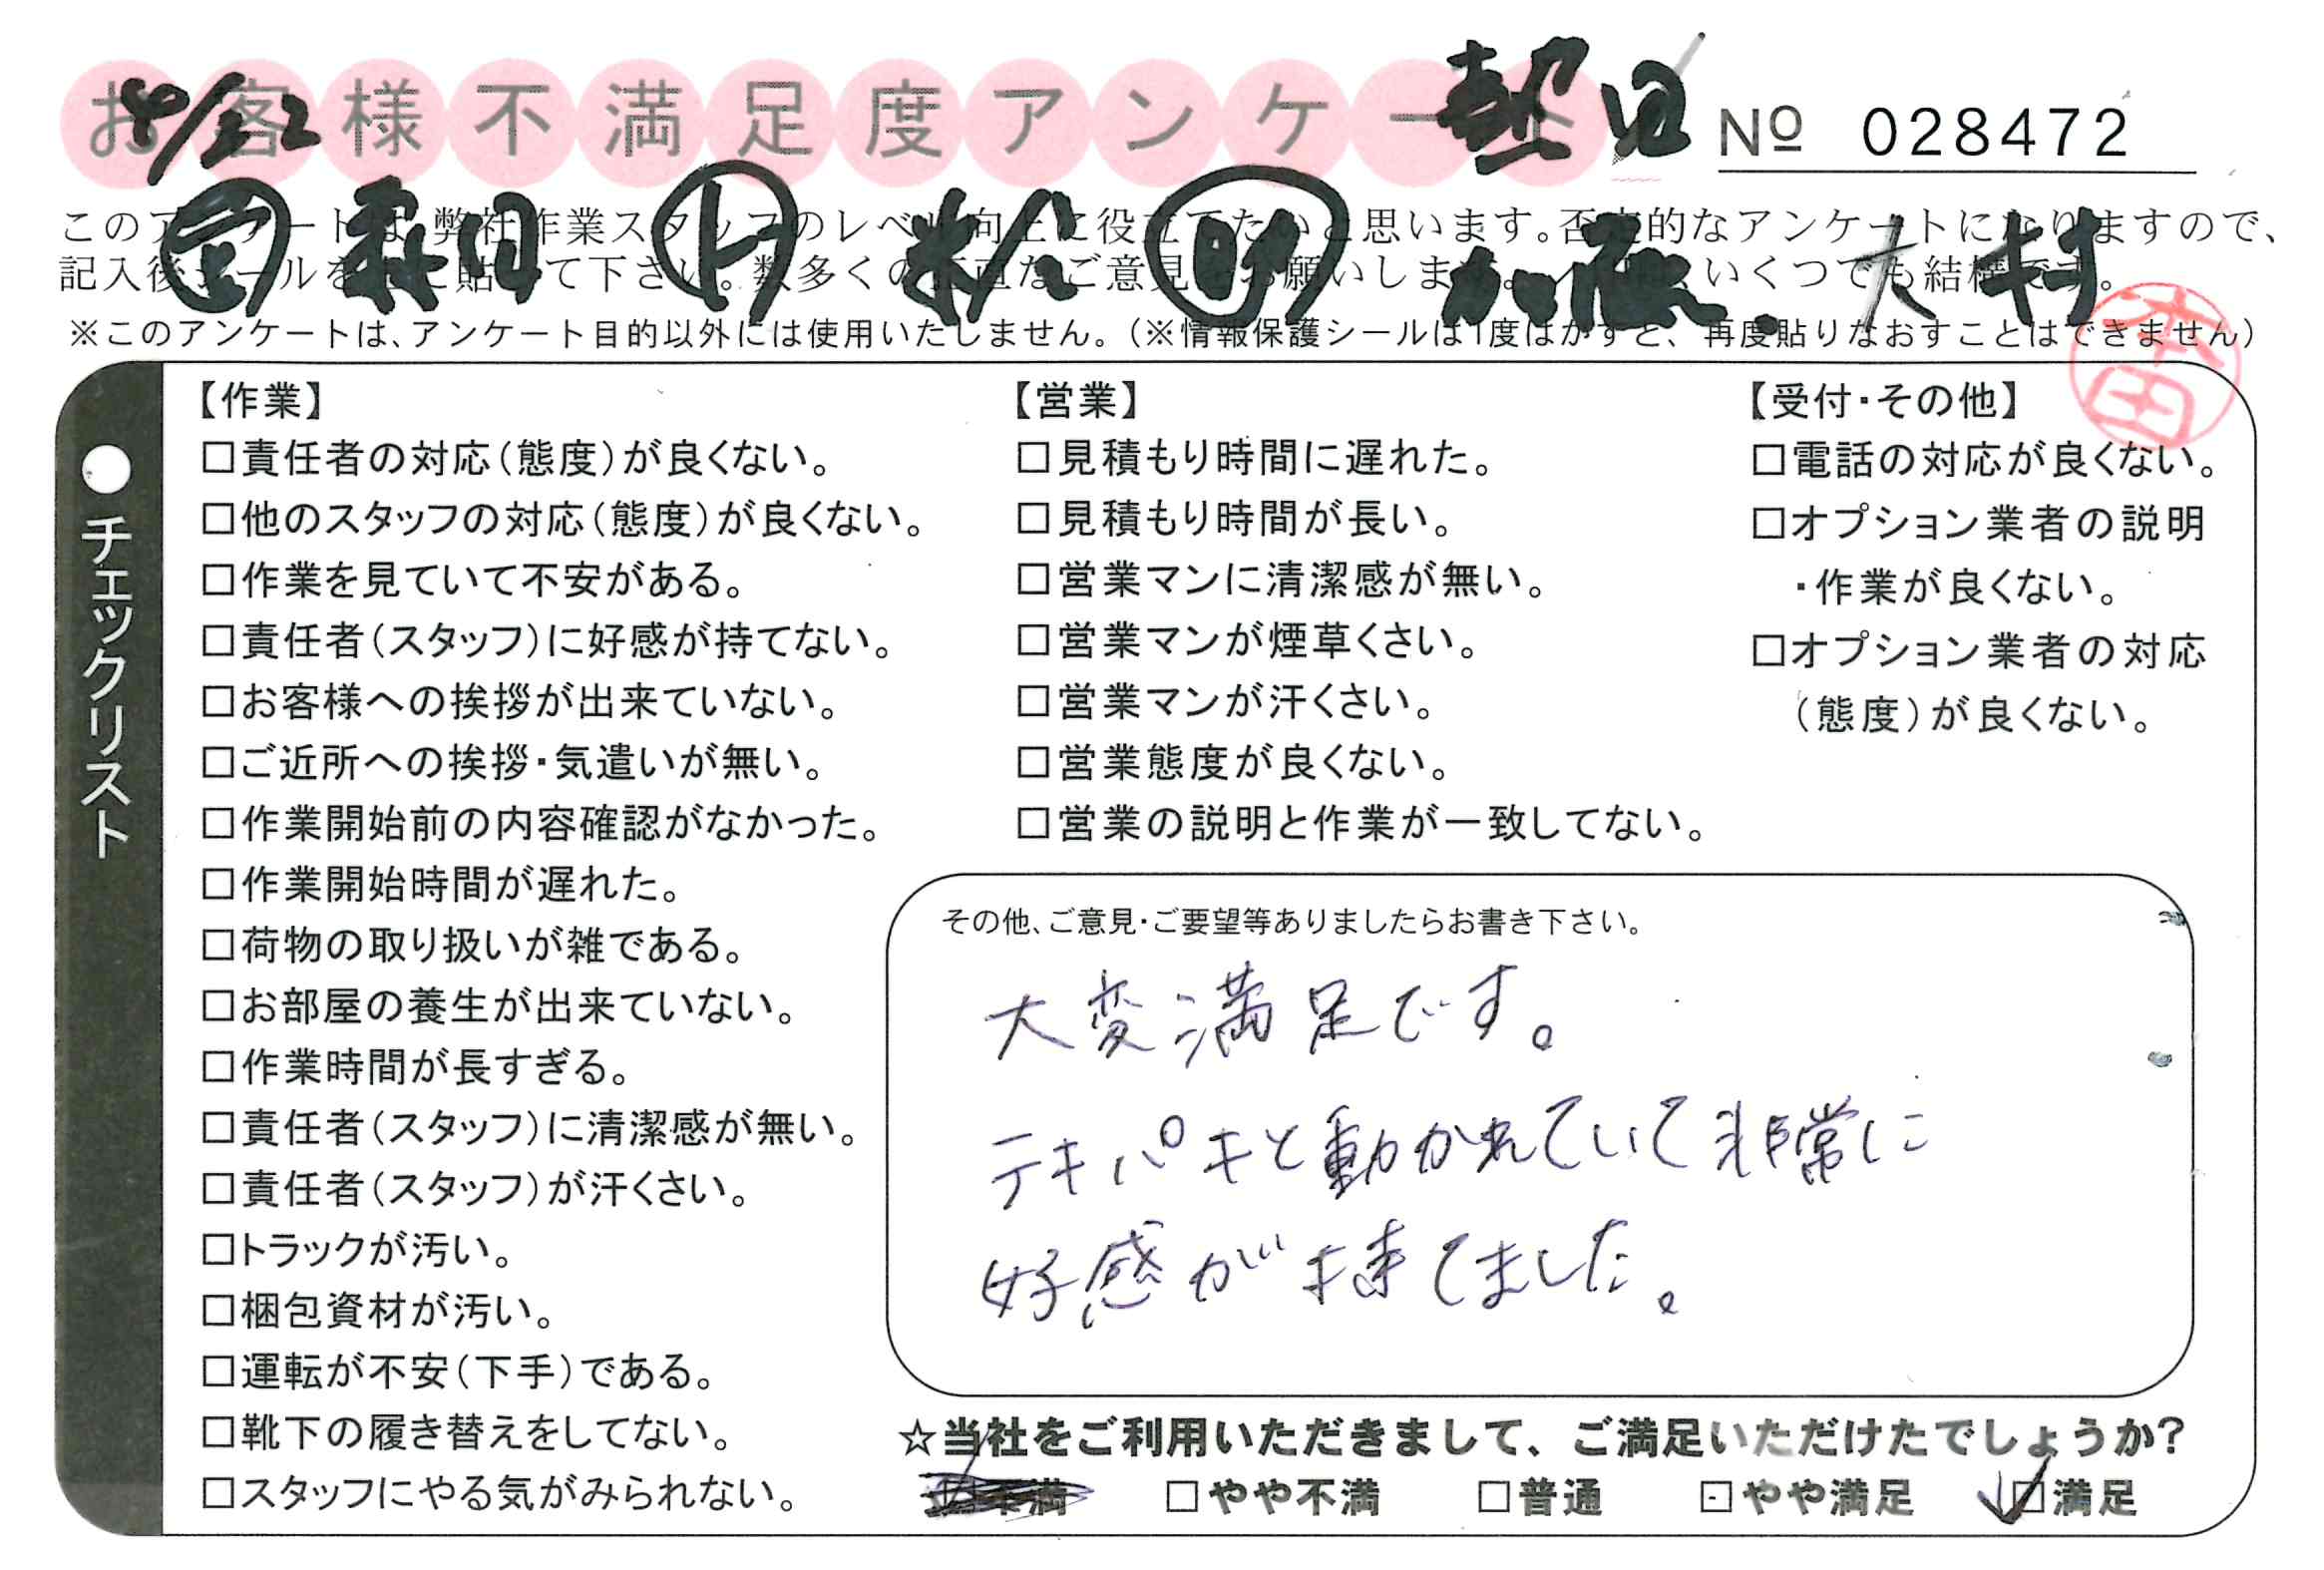 お客様不満足度アンケート
熱田
№ 028472
森田 ト 松 助 加藤 . 大村
このアンケートは、弊社作業スタッフのレベル向上に役立てたいと思います。否定的なアンケートになりますので、
記入後シールを 貼って下さい。数多くの正直なご意見をお願いします。 いくつでも結構です。
※このアンケートは、アンケート目的以外には使用いたしません。(※情報保護シールは1度はがすと、再度貼りなおすことはできません)
本田
●チェックリスト
【作業】
□責任者の対応(態度)が良くない。
□他のスタッフの対応(態度)が良くない。
□作業を見ていて不安がある。
□責任者(スタッフ)に好感が持てない。
□お客様への挨拶が出来ていない。
□ご近所への挨拶・気遣いが無い。
□作業開始前の内容確認がなかった。
□作業開始時間が遅れた。
□荷物の取り扱いが雑である。
□お部屋の養生が出来ていない。
□作業時間が長すぎる。
□責任者(スタッフ)に清潔感が無い。
□責任者(スタッフ)が汗くさい。
□トラックが汚い。
□梱包資材が汚い。
□運転が不安(下手)である。
□靴下の履き替えをしてない。
□スタッフにやる気がみられない。
【営業】
□見積もり時間に遅れた。
□見積もり時間が長い。
□営業マンに清潔感が無い。
□営業マンが煙草くさい。
□営業マンが汗くさい。
□営業態度が良くない。
□営業の説明と作業が一致してない。
【受付・その他】
□電話の対応が良くない。
□オプション業者の説明
・作業が良くない。
□オプション業者の対応
(態度)が良くない。
その他、ご意見・ご要望等ありましたらお書き下さい。
大変満足です。
テキパキと動かれていて非常に
好感が持てました。
☆当社をご利用いただきまして、ご満足いただけたでしょうか?
□不満 □やや不満 □普通 □やや満足 ☑満足